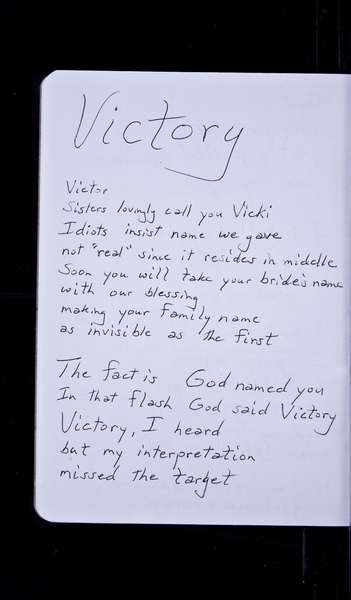 Victory
Victor
Sisters lovingly call you Vicki
Idiots insist name we gave
not "real" since it resides in middle
Soon you will take your bride's name
with our blessing
making your family name
as invisible as the first
The fact is God named you
In that flash God said Victory
Victory, I heard
but my interpretation
missed the target